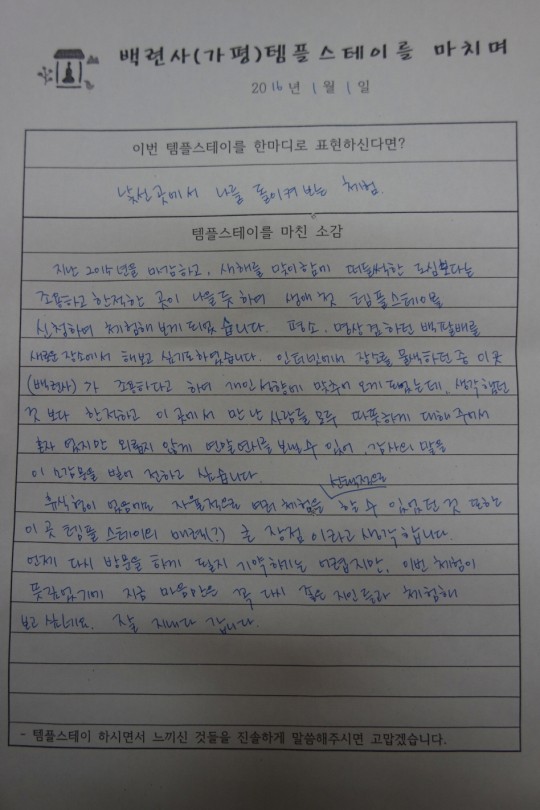 백련사(가평)템플스테이를 마치며
2016년 1월 1일
이번 템플스테이를 한마디로 표현하신다면?
낯선 곳에서 나를 돌이켜 보는 체험.
템플스테이를 마친 소감
지난 2015년을 마감하고, 새해를 맞이함에 떠들썩한 도심보다는
조용하고 한적한 곳이 나을듯 하여 생애 첫 템플스테이를
신청하여 체험해 보게 되었습니다. 평소, 명상 겸 하던 백팔배를
새로운 장소에서 해보고 싶기도 하였습니다. 인터넷에서 장소를 물색하던 중 이곳
(백련사)가 조용하다고 하여 개인성향에 맞추어 오게 되었는데, 생각했던
것 보다 한적하고 이 곳에서 만난 사람들 모두 따뜻하게 대해 주셔서
혼자 였지만 외롭지 않게 연말연시를 보낼 수 있어, 감사의 맘을
이 소감문을 빌어 전하고 싶습니다.
휴식형이 었음에도 자율적으로 여러 체험을 선택적으로 할 수 있었던 것 또한
이 곳 템플 스테이의 매력(?) 큰 장점 이라고 생각합니다.
언제 다시 방문을 하게 될지 기약하기는 어렵지만, 이번 체험이
뜻깊었기에 지금 마음만은 꼭 다시 같은 지인들과 체험해
보고 싶네요. 잘 지내다 갑니다.
- 템플스테이 하시면서 느끼신 것들을 진솔하게 말씀해주시면 고맙겠습니다.